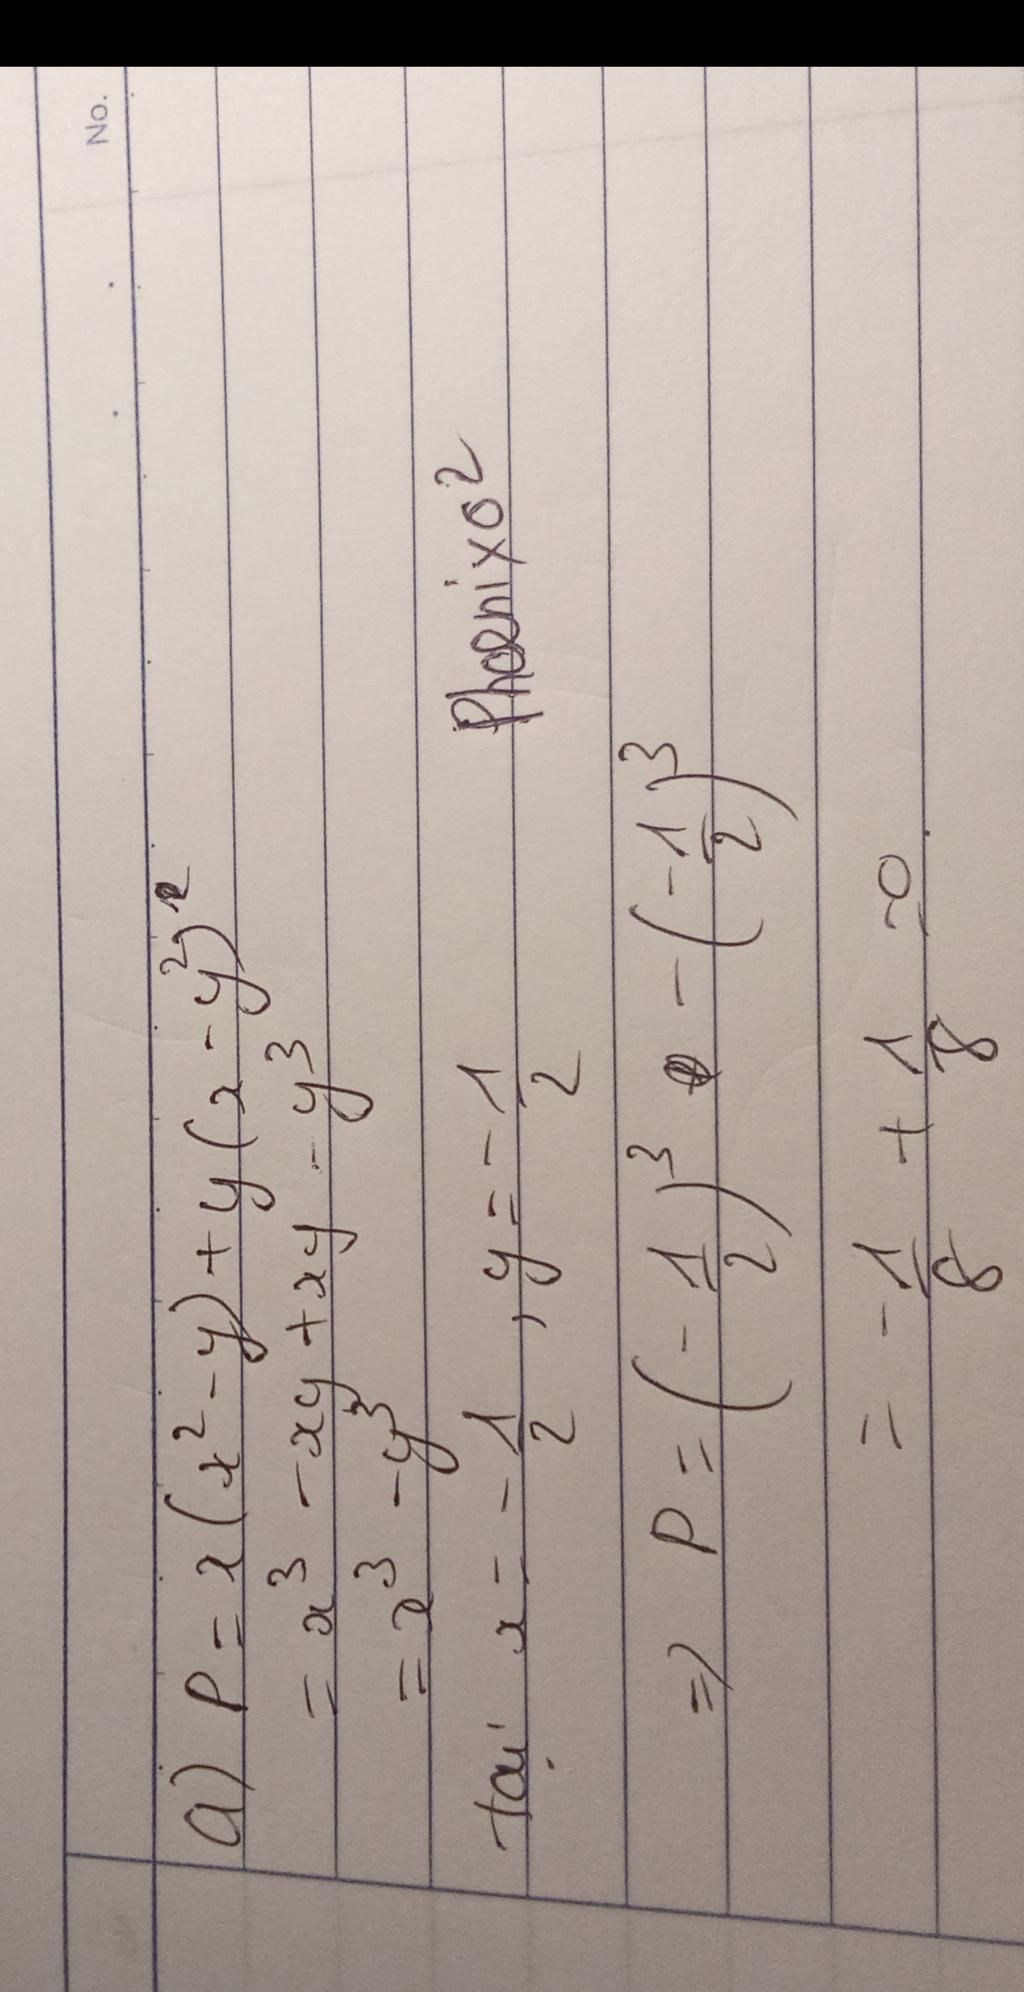 No.
a) P = x(x² - y) + y(x - y²)
= x³ - xy + xy - y³
= x³ - y³
tại x = -1/2, y = -1/2
Phoenixo2
=> P = (-1/2)³ - (-1/2)³
= -1/8 + 1/8 = 0